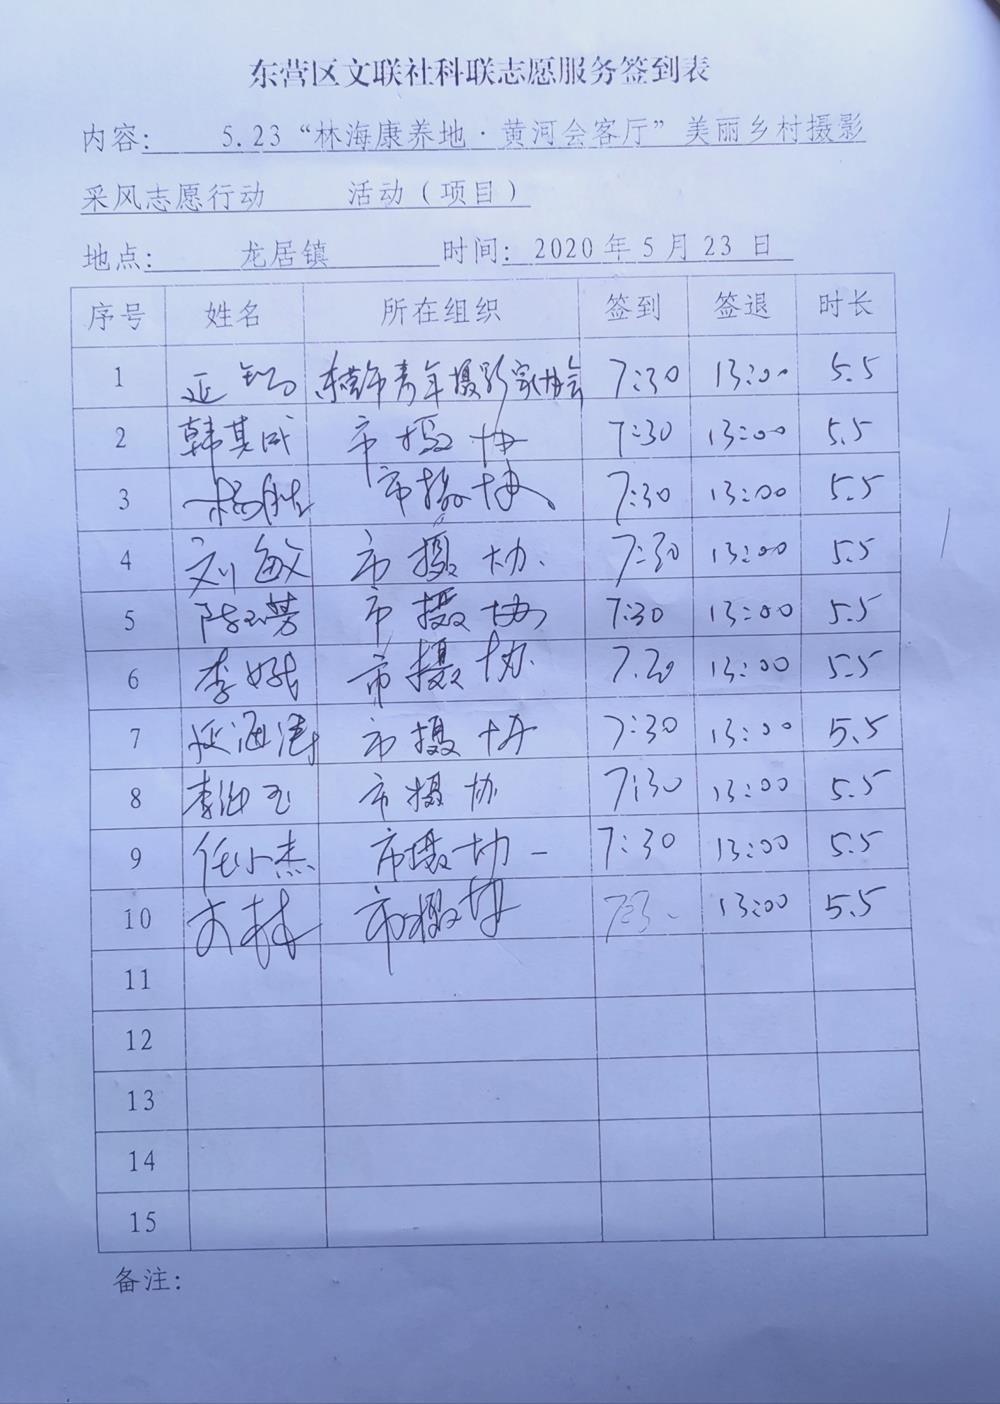 东营区文联社科联志愿服务签到表
内容: 5.23“林海康养地·黄河会客厅”美丽乡村摄影
采风志愿行动 活动(项目)
地点: 龙居镇 时间: 2020年5月23日
序号 姓名 所在组织 签到 签退 时长
1 东营市青年摄影家协会 7:30 13:00 5.5
2 韩其成 市摄协 7:30 13:00 5.5
3 杨胜 市摄协 7:30 13:00 5.5
4 刘敏 市摄协. 7:30 13:00 5.5
5 陈玉芳 市摄协 7:30 13:00 5.5
6 李娥 市摄协. 13:00 5.5
7 延海涛 市摄协 7:30 13:00 5.5
8 李海玉 市摄协 7:30 13:00 5.5
9 任小杰 市摄协 7:30 13:00 5.5
10 市摄协 13:00 5.5
11
12
13
14
15
备注: